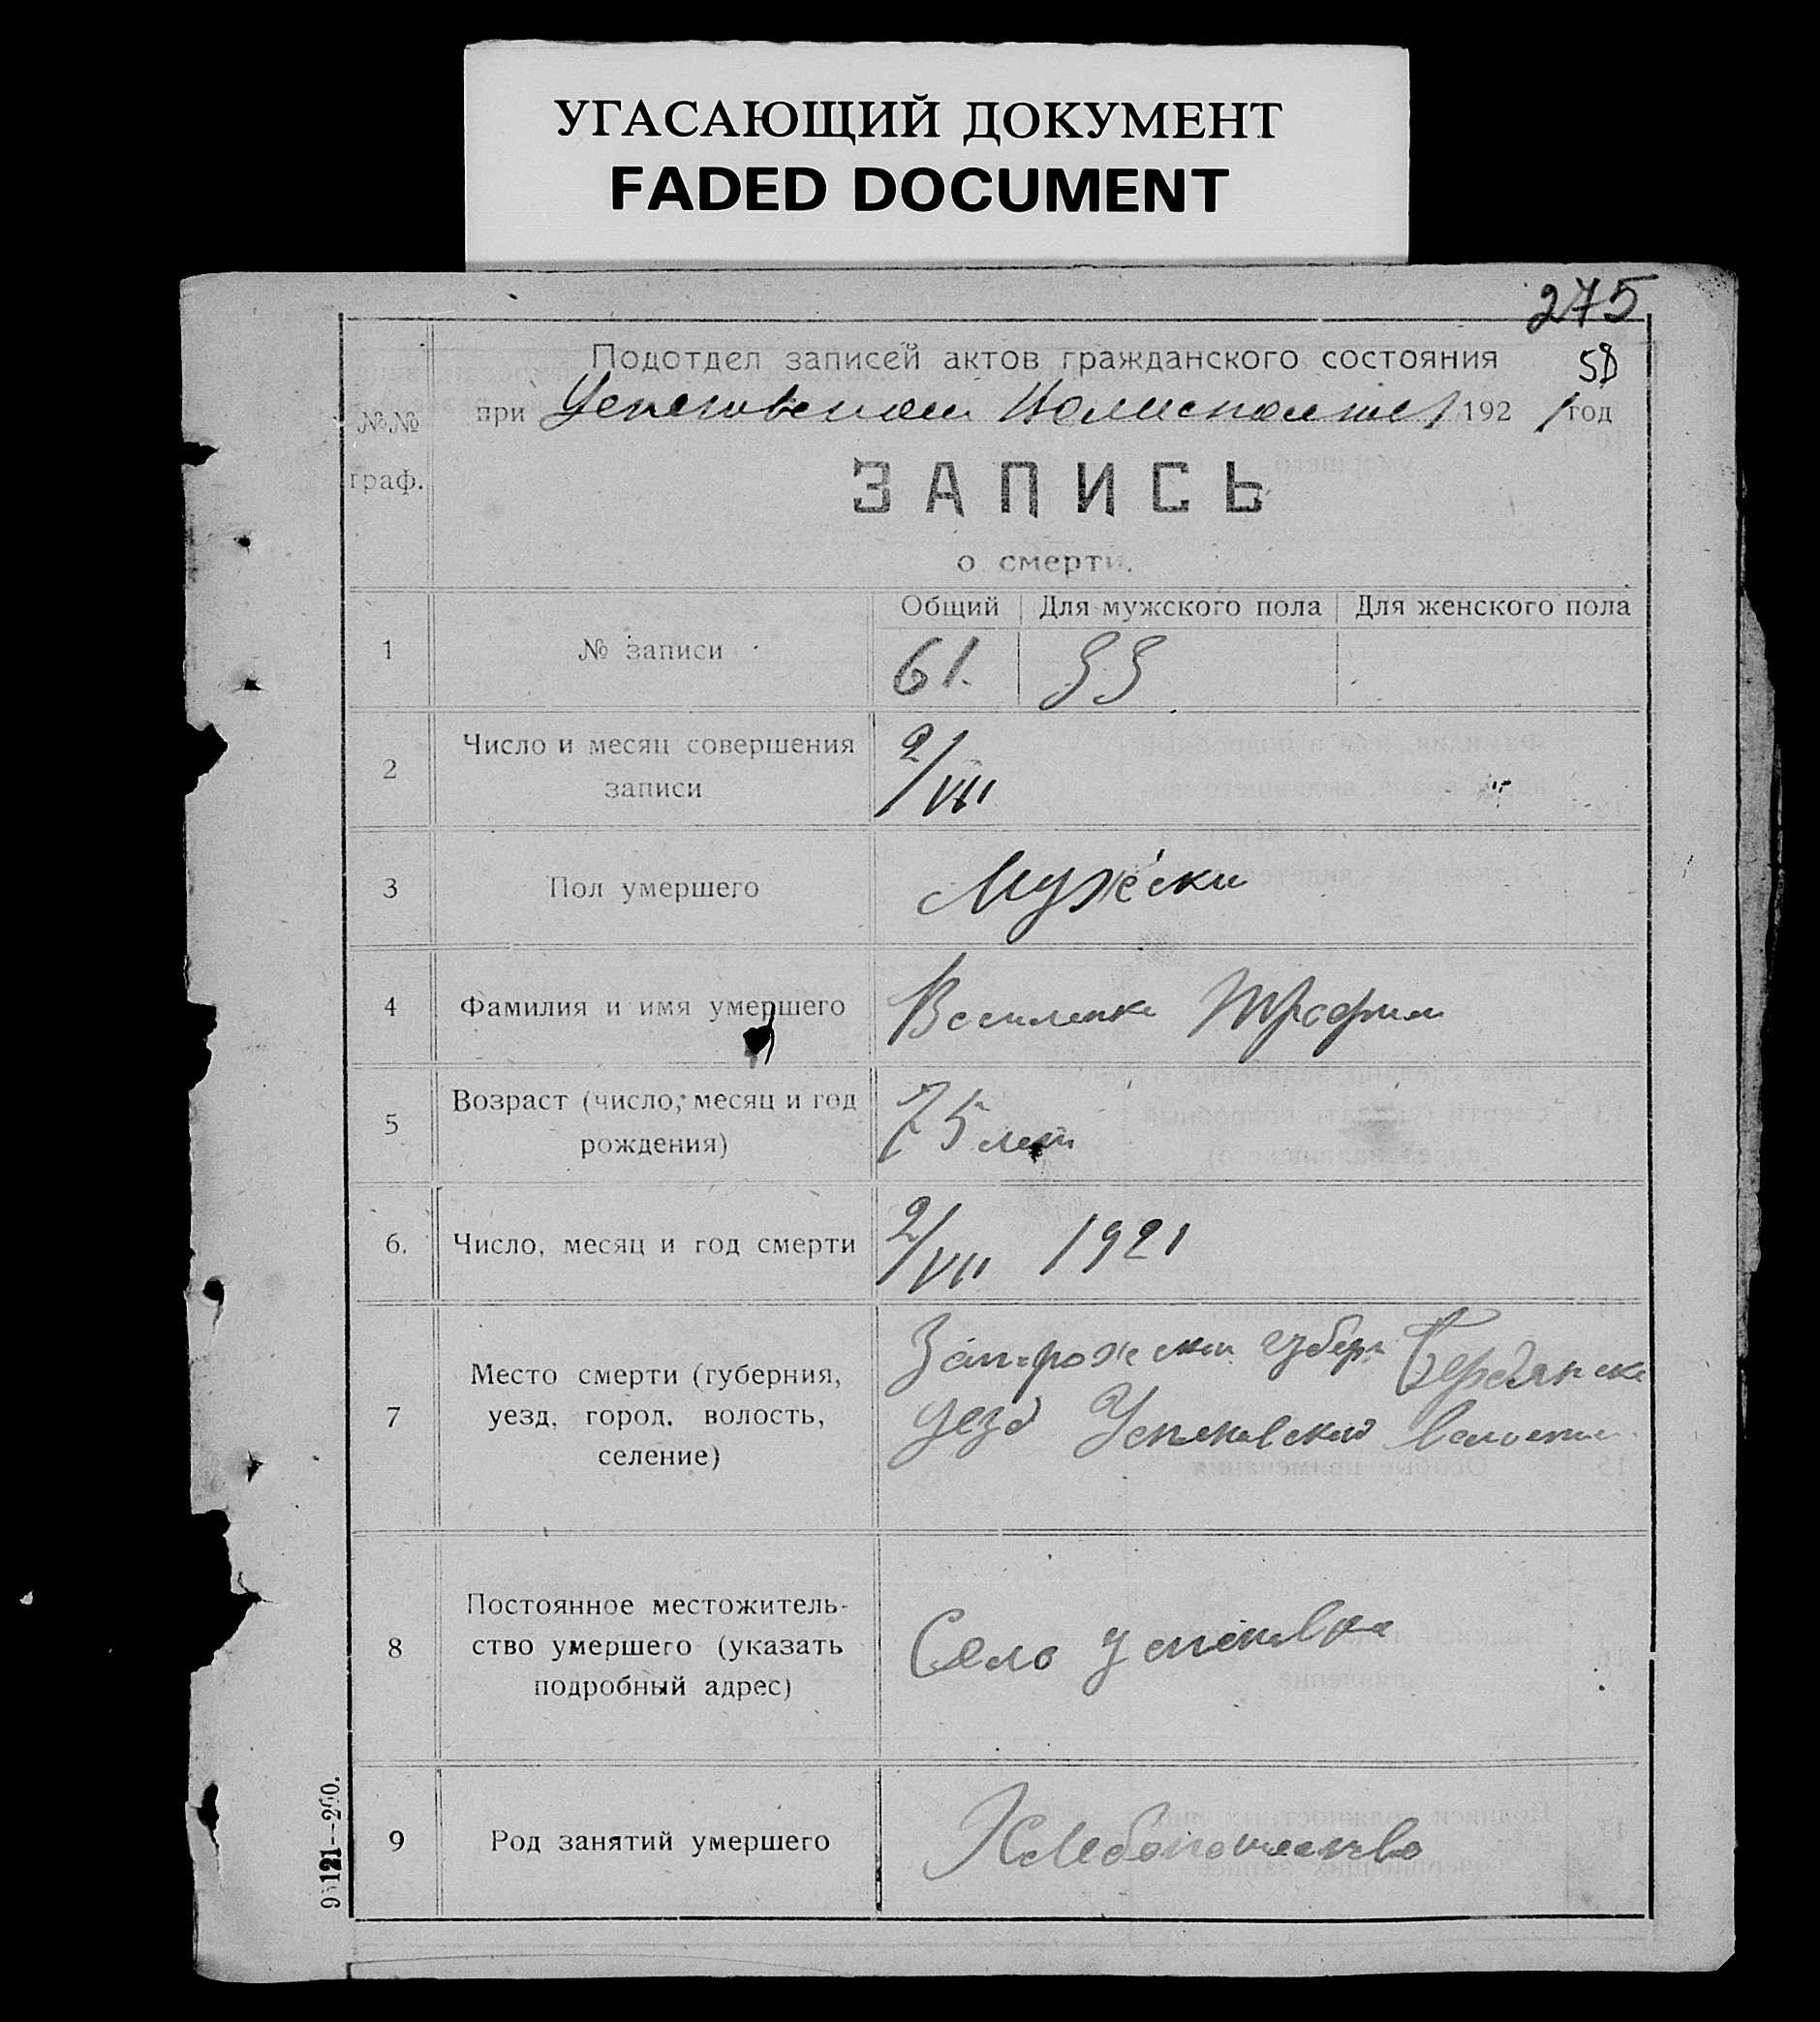 УГАСАЮЩИЙ ДОКУМЕНТ
FADED DOCUMENT
275
58
Подотдел записей актов гражданского состояния
при Успеновском Волисполкоме 1921 год
№№
граф.
ЗАПИСЬ
о смерти.
Общий Для мужского пола Для женского пола
1 № записи 61. 33
2 Число и месяц совершения
записи 2/VII
3 Пол умершего Мужески
4 Фамилия и имя умершего Василенко Трофим
5 Возраст (число, месяц и год
рождения) 75 лет
6. Число, месяц и год смерти 2/VII 1921
7 Место смерти (губерния,
уезд, город, волость,
селение)
Запорожской губерн Бердянска
уезд Успеновской волости
8 Постоянное местожитель-
ство умершего (указать
подробный адрес)
Село Успеновка
9 Род занятий умершего Хлебопашество